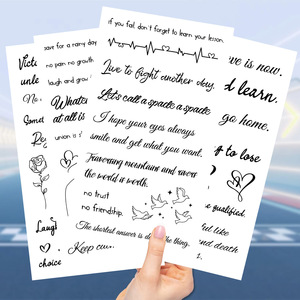 if you fail don't forget to learn your lesson.
Live to fight another day.
Let's call a spade a spade
I hope your eyes always
smile and get what you want.
the world is worth.
no trust
no friendship.
The shortest answer is doing the thing.
save for a rainy day
no pain no growth
laugh and grow
Whatev
at all is
union is s
Victo
unle
No
Somet
Laugh
choice
we is now.
d learn.
go home.
to lose
e qualified.
ul like
nd death